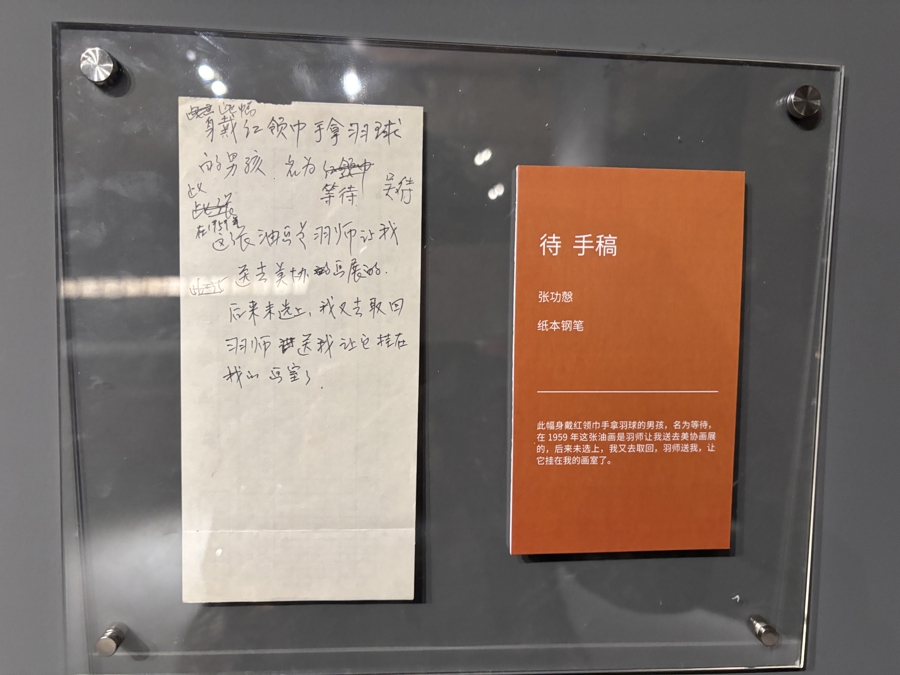 此幅
身戴红领巾手拿羽球
的男孩.名为红领巾
等待
此
在1959年
这张油画是羽师让我
送去美协的画展的.
后来未选上,我又去取回
羽师送我让它挂在
我的画室了.
待 手稿
张功慤
纸本钢笔
此幅身戴红领巾手拿羽球的男孩,名为等待,
在 1959 年这张油画是羽师让我送去美协画展
的,后来未选上,我又去取回,羽师送我,让
它挂在我的画室了。